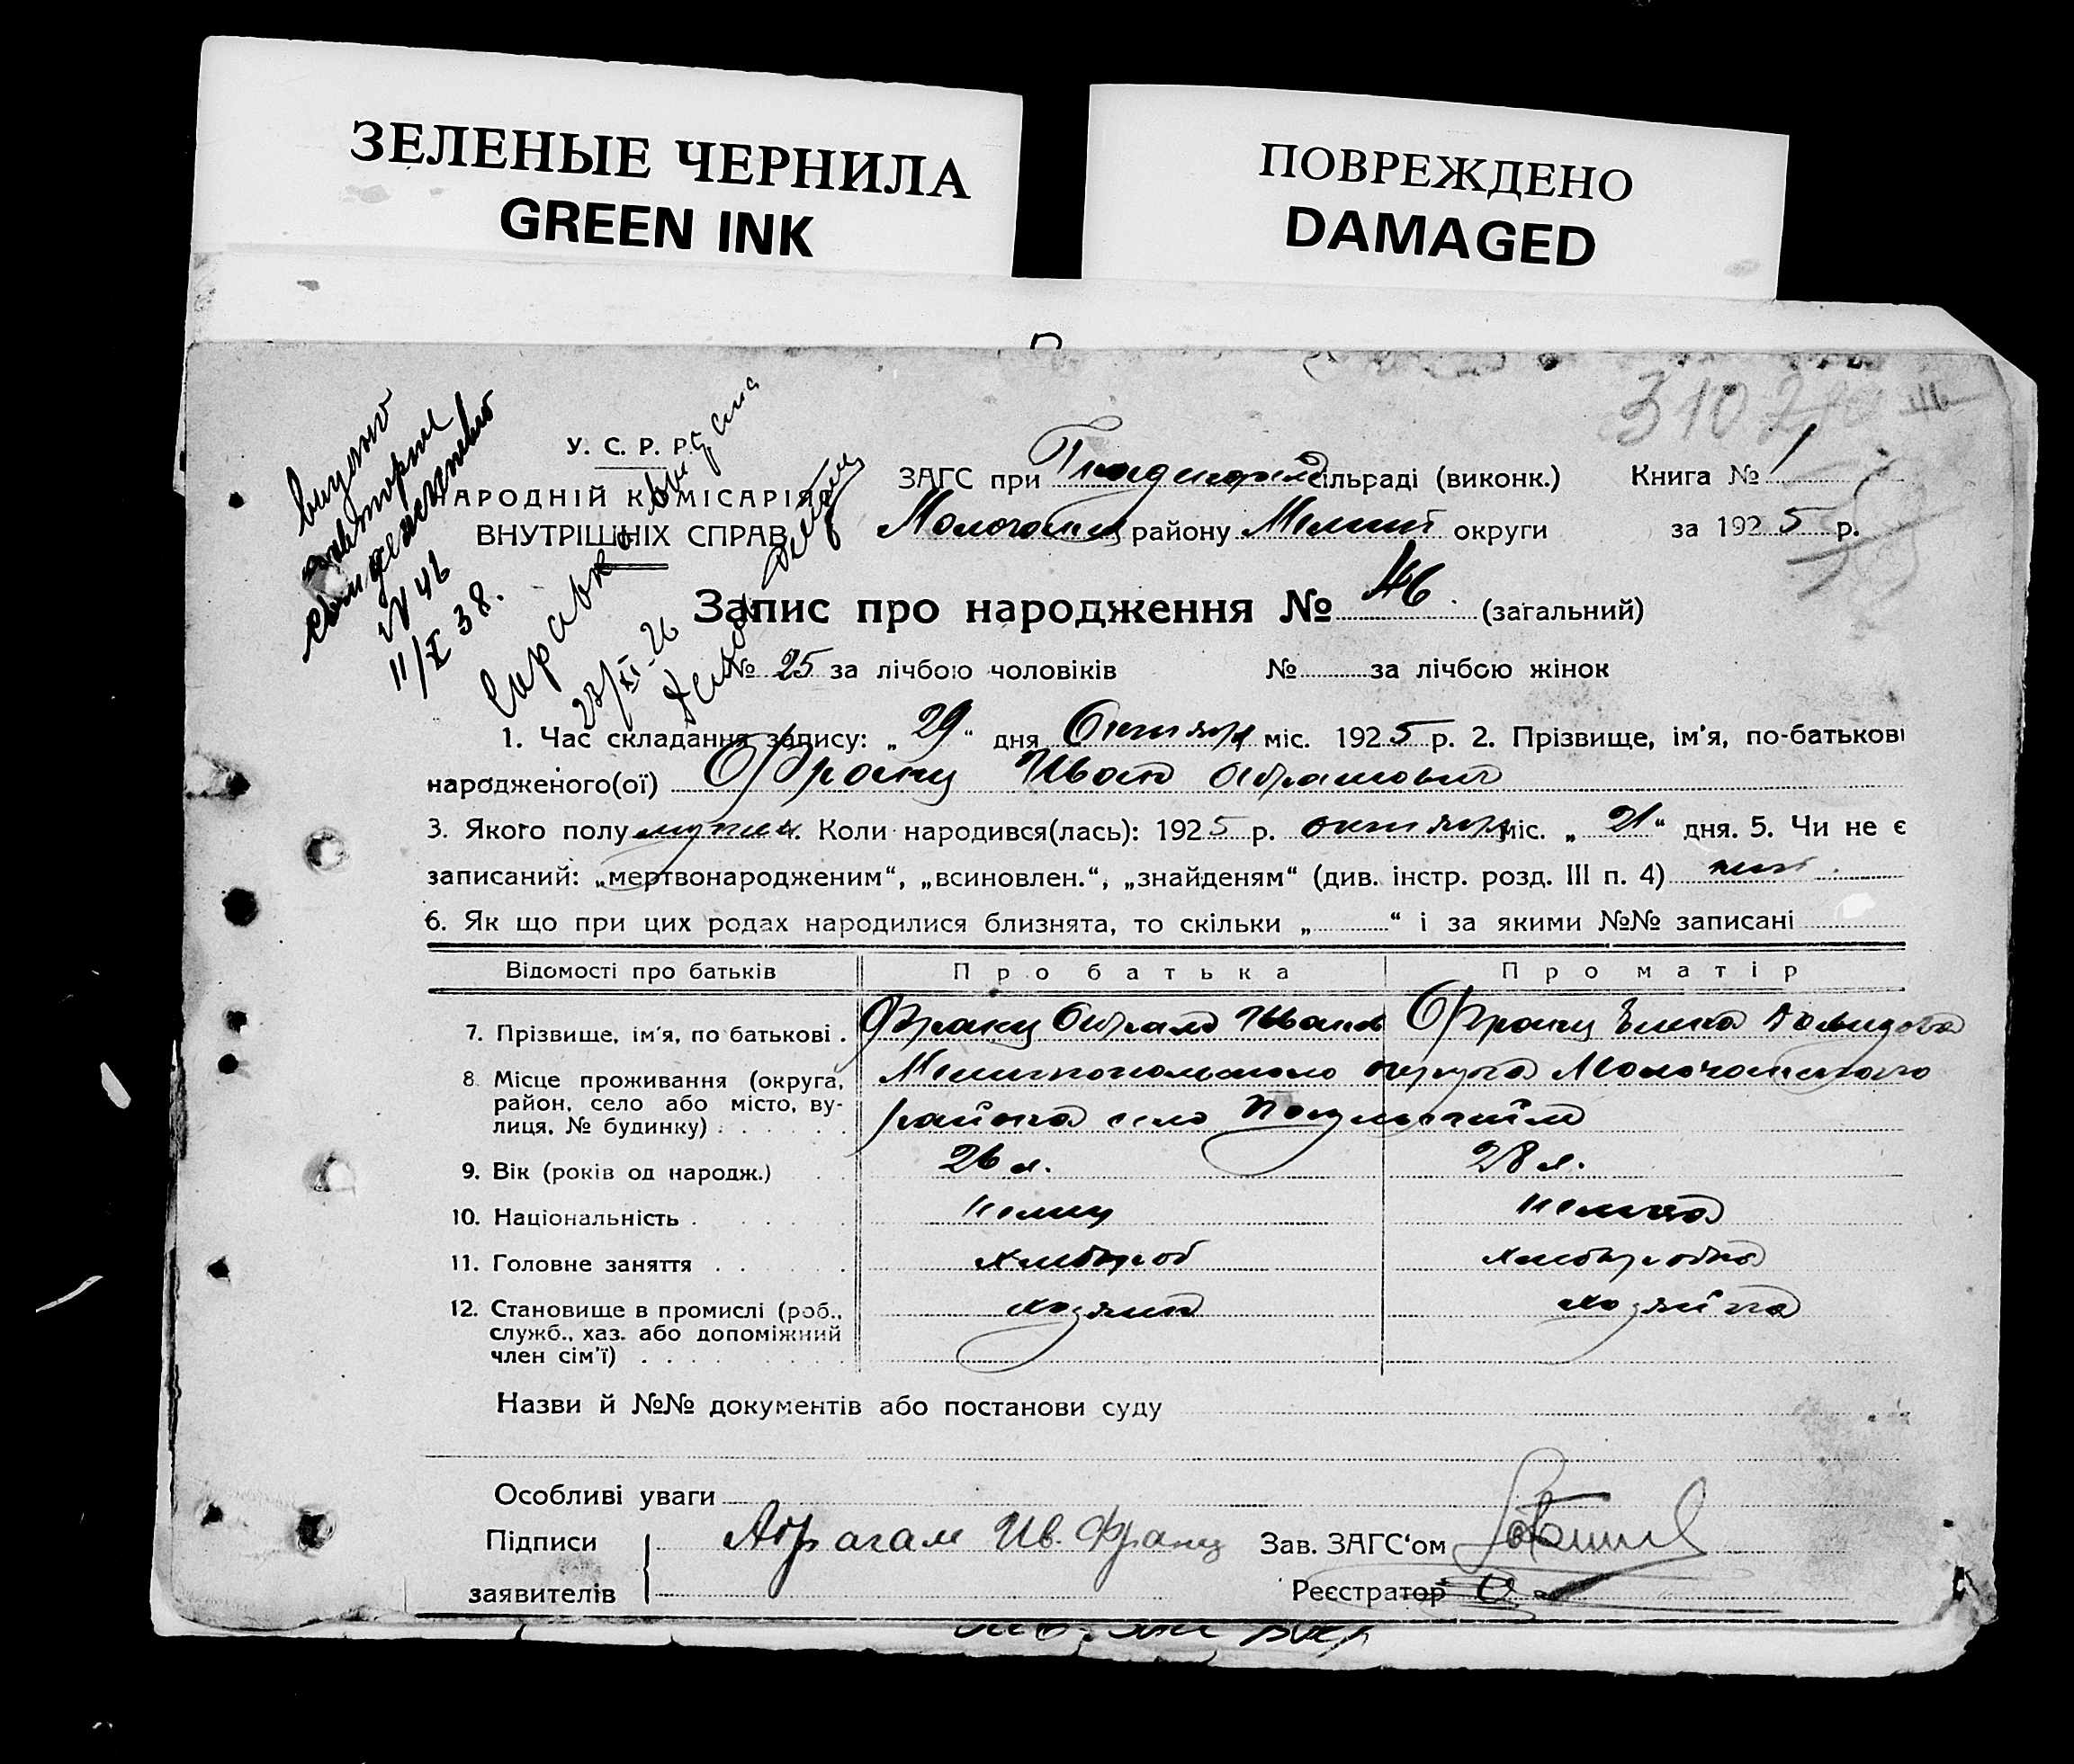 ЗЕЛЕНЫЕ ЧЕРНИЛА
GREEN INK
ПОВРЕЖДЕНО
DAMAGED
310
видано
повторне
N 46
11/X 38.
Справка выдана
23/XI-26
У. С. Р. Р.
НАРОДНІЙ КОМІСАРІЯТ
ВНУТРІШНІХ СПРАВ
ЗАГС при сільраді (виконк.) Книга № 1
району Меліт округи за 1925 р.
Запис про народження № 46 (загальний)
№ 25 за лічбою чоловіків № за лічбою жінок
1. Час складання запису: „ 29 “ дня Октября міс. 1925 р. 2. Прізвище, ім'я, по-батькові
народженого(ої) Франц Иван Абрамович
3. Якого полу мужск. Коли народився(лась): 1925 р. октября міс. „ 21 “ дня. 5. Чи не є
записаний: „мертвонародженим“, „всиновлен.“, „знайденям“ (див. інстр. розд. III п. 4) нет.
6. Як що при цих родах народилися близнята, то скільки „ “ і за якими №№ записані
Відомості про батьків Про батька Про матір
7. Прізвище, ім'я, по батькові . Франц Абрам Иванов Франц Елена Давидова
8. Місце проживання (округа, Мелитопольского округа Молочанского
район, село або місто, ву- района село
лиця, № будинку) . . . . . .
9. Вік (років од народж.) 26 л. 28 л.
10. Національність . . . . . . немец немка
11. Головне заняття . . . . . хлебороб хлеборобка
12. Становище в промислі (роб., хозяин хозяйка
служб., хаз. або допоміжний
член сім'ї) . . . . . . . .
Назви й №№ документів або постанови суду
Особливі уваги
Підписи Абрагам Ив. Франц Зав. ЗАГС'ом
заявителів Реєстратор